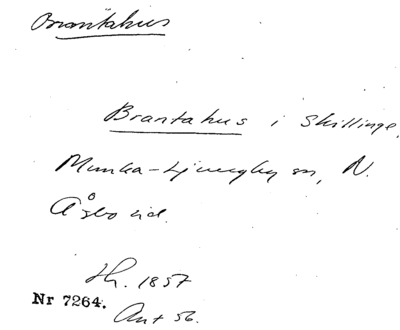 Brantahus
Brantahus i Skillinge,
Munka-Ljungby sn, N.
Åsbo hd.
Hfl. 1857
Nr 7264.
Ant 56.